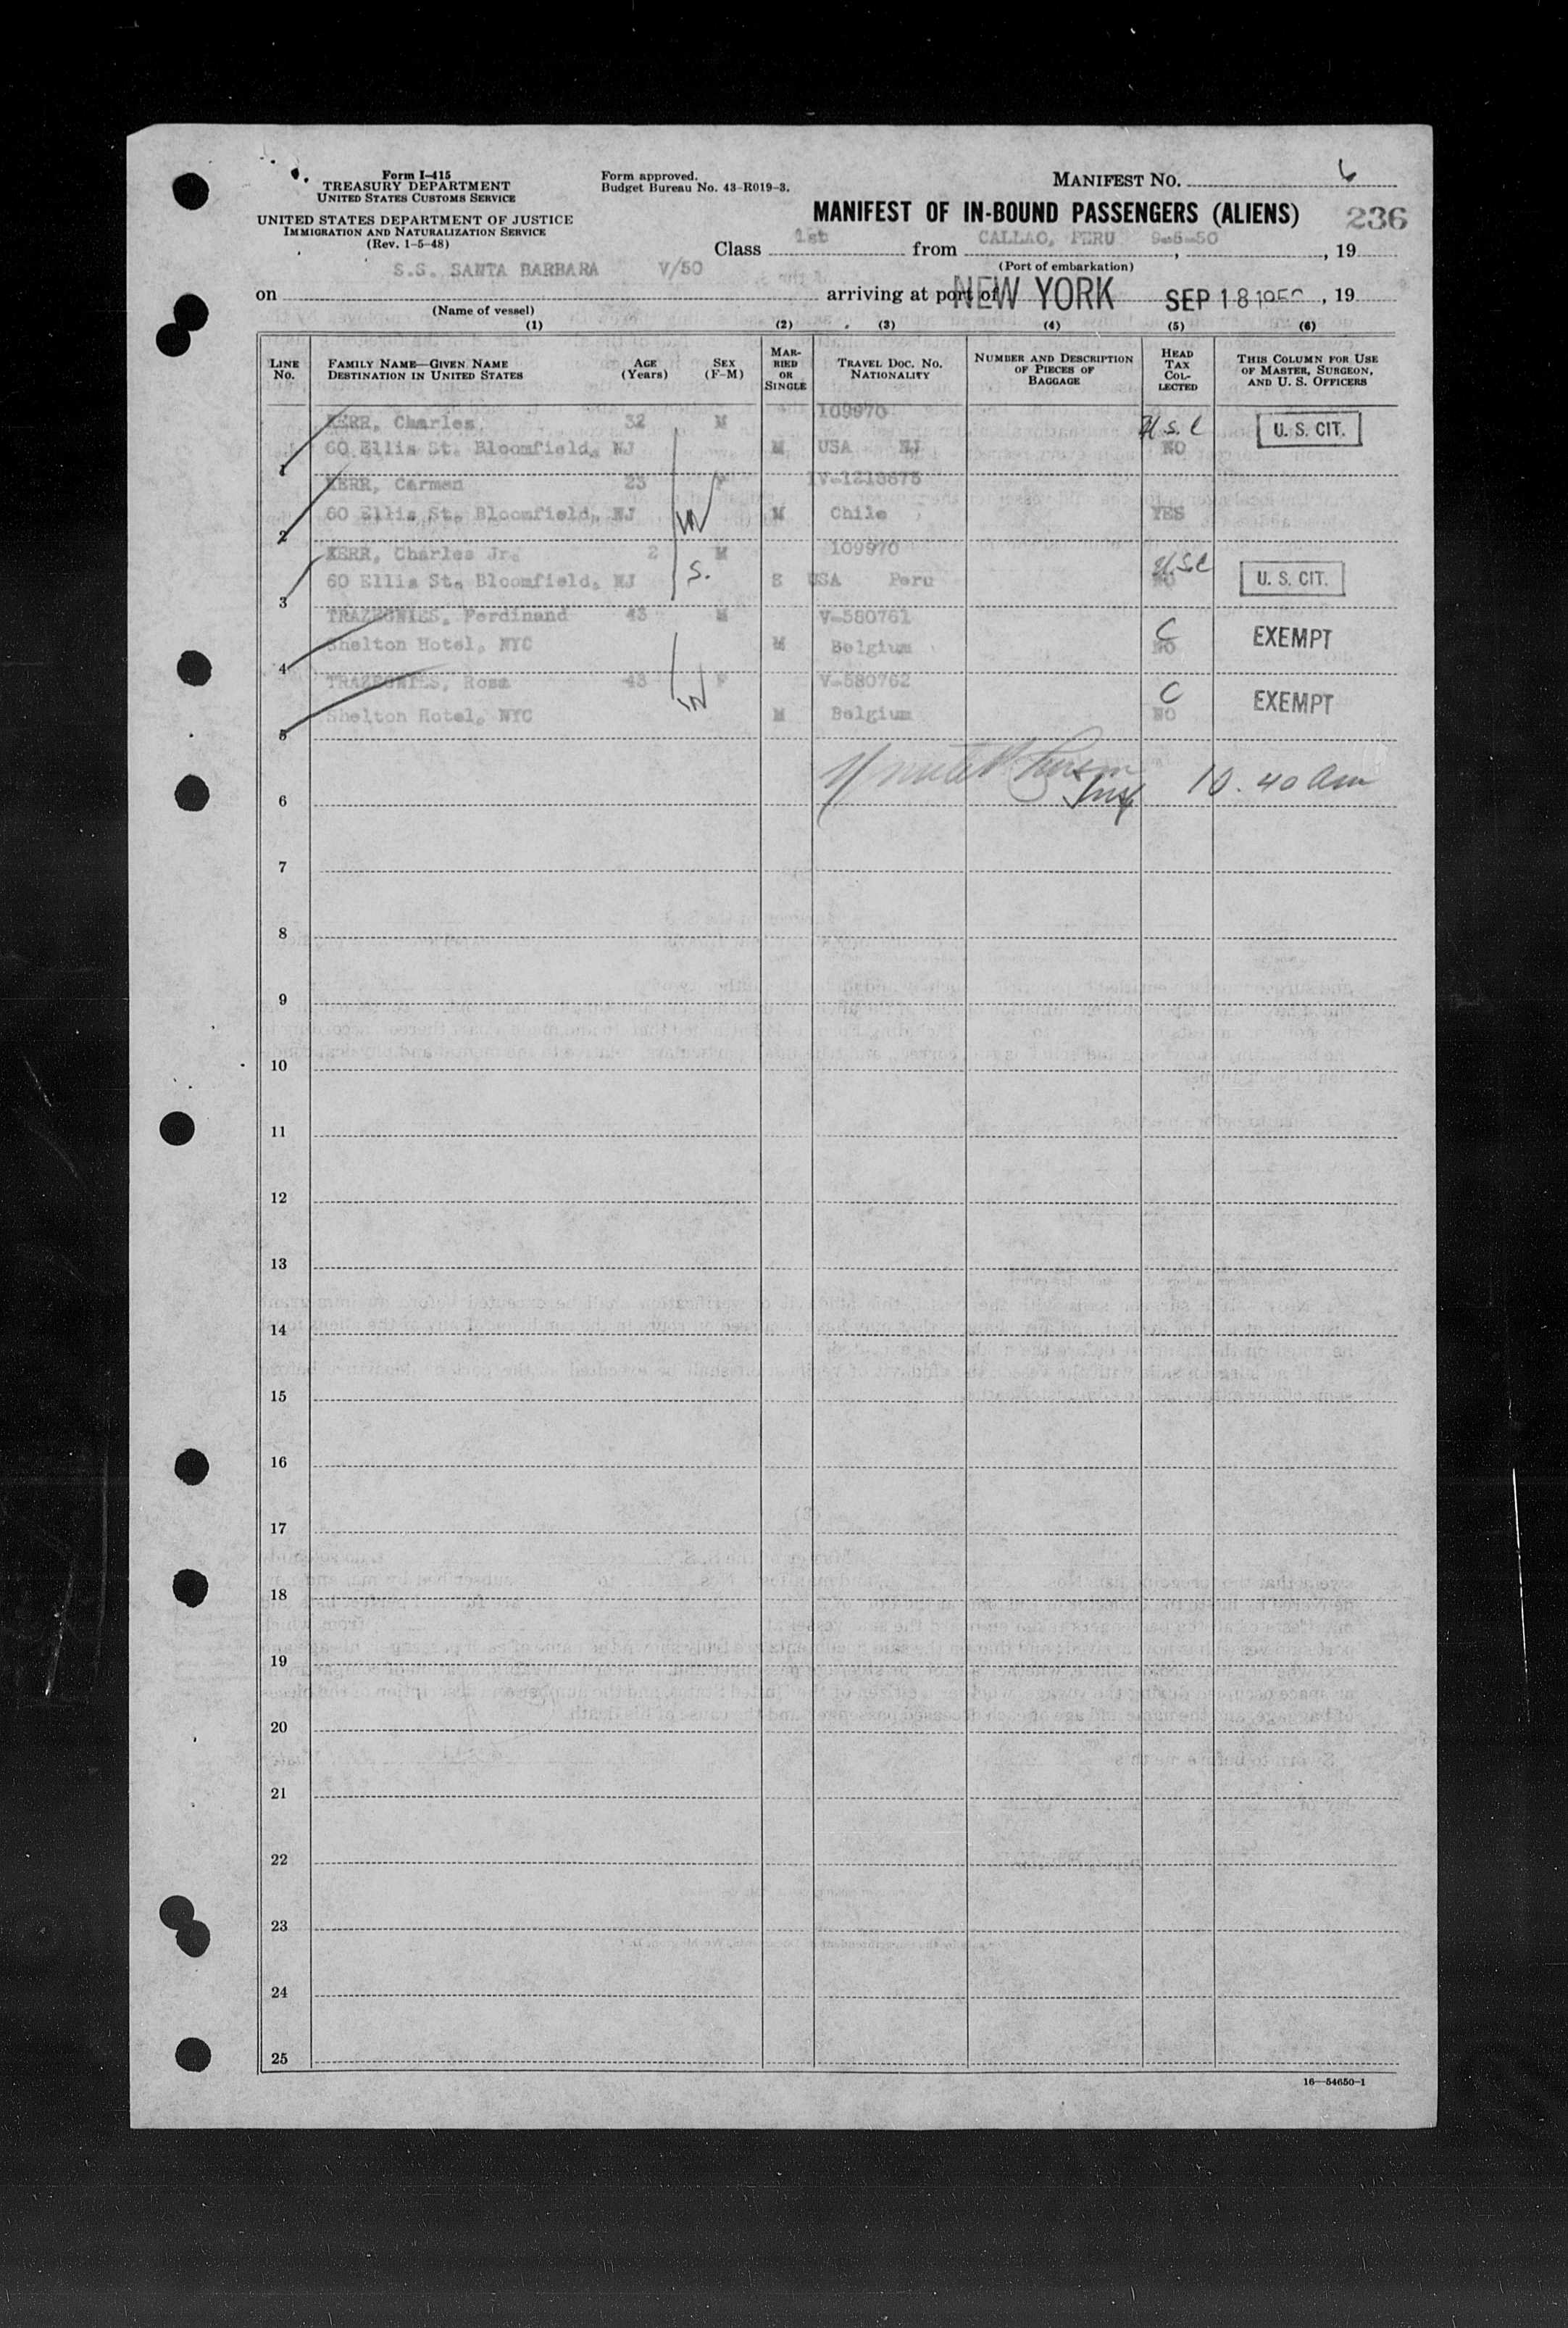 Form I-415
TREASURY DEPARTMENT
UNITED STATES CUSTOMS SERVICE
UNITED STATES DEPARTMENT OF JUSTICE
IMMIGRATION AND NATURALIZATION SERVICE
(Rev. 1-5-48)
Form approved.
Budget Bureau No. 43-R019-3.
MANIFEST NO. 6
MANIFEST OF IN-BOUND PASSENGERS (ALIENS) 236
Class 1st from CALLAO, PERU 9-5-50, 19
(Port of embarkation)
on S.S. SANTA BARBARA V/50 arriving at port of NEW YORK SEP 18 1950, 19
(Name of vessel)
(1) (2) (3) (4) (5) (6)
LINE No. FAMILY NAME—GIVEN NAME DESTINATION IN UNITED STATES AGE (Years) SEX (F-M) MARRIED OR SINGLE TRAVEL DOC. NO. NATIONALITY NUMBER AND DESCRIPTION OF PIECES OF BAGGAGE HEAD TAX COLLECTED THIS COLUMN FOR USE OF MASTER, SURGEON, AND U. S. OFFICERS
KERR, Charles, 32 M 109970 U.S.C U. S. CIT.
1 60 Ellis St. Bloomfield, NJ M USA NJ NO
KERR, Carmen 23 F IV-1213675
2 60 Ellis St. Bloomfield, NJ M Chile YES
KERR, Charles Jr. 2 M 109970 U.S.C
3 60 Ellis St. Bloomfield, NJ S. S USA Peru NO U. S. CIT.
TRAZEGNIES, Ferdinand 43 M V-580761 C EXEMPT
4 Shelton Hotel, NYC M Belgium NO
TRAZEGNIES, Rosa 43 F V-580762 C EXEMPT
5 Shelton Hotel, NYC M Belgium NO
6 Insp 10.40 am
7
8
9
10
11
12
13
14
15
16
17
18
19
20
21
22
23
24
25
16—54650-1